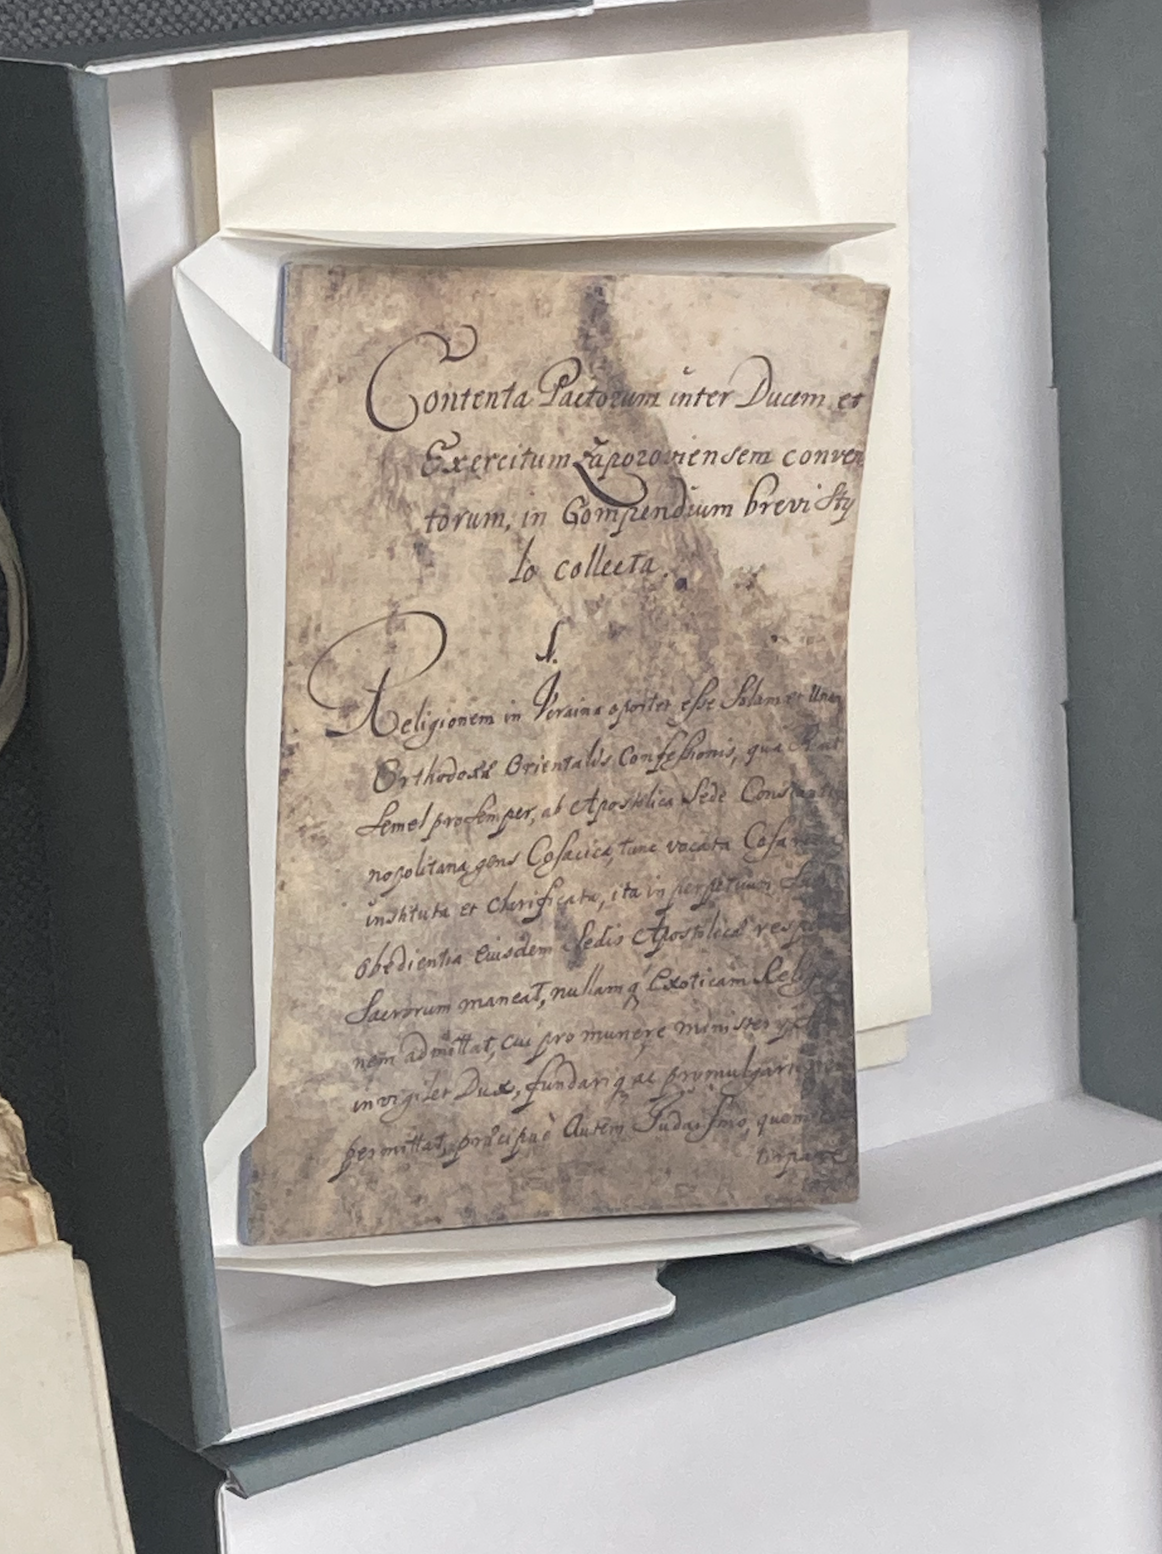 Contenta Pactorum inter Ducem et
Exercitum Zaporoviensem conven
torum, in Compendium brevi Sty
lo collecta.
1.
Religionem in Vcraina oportet esse Solam et Unam
Orthodoxæ Orientalis Confessionis, qua
Semel pro semper, ab Apostolica Sede Constanti
nopolitana, gens Cosacica, tunc vocata
instituta et clarificata, ita in perpetuum
obedientia eiusdem Sedis Apostolicæ
Sacrorum maneat, nullamq́ Exoticam
nem admittat, cui pro munere
invigilet Dux, fundariq́ ac promulgari
permittat, præcipuè autem Judaismo, quem